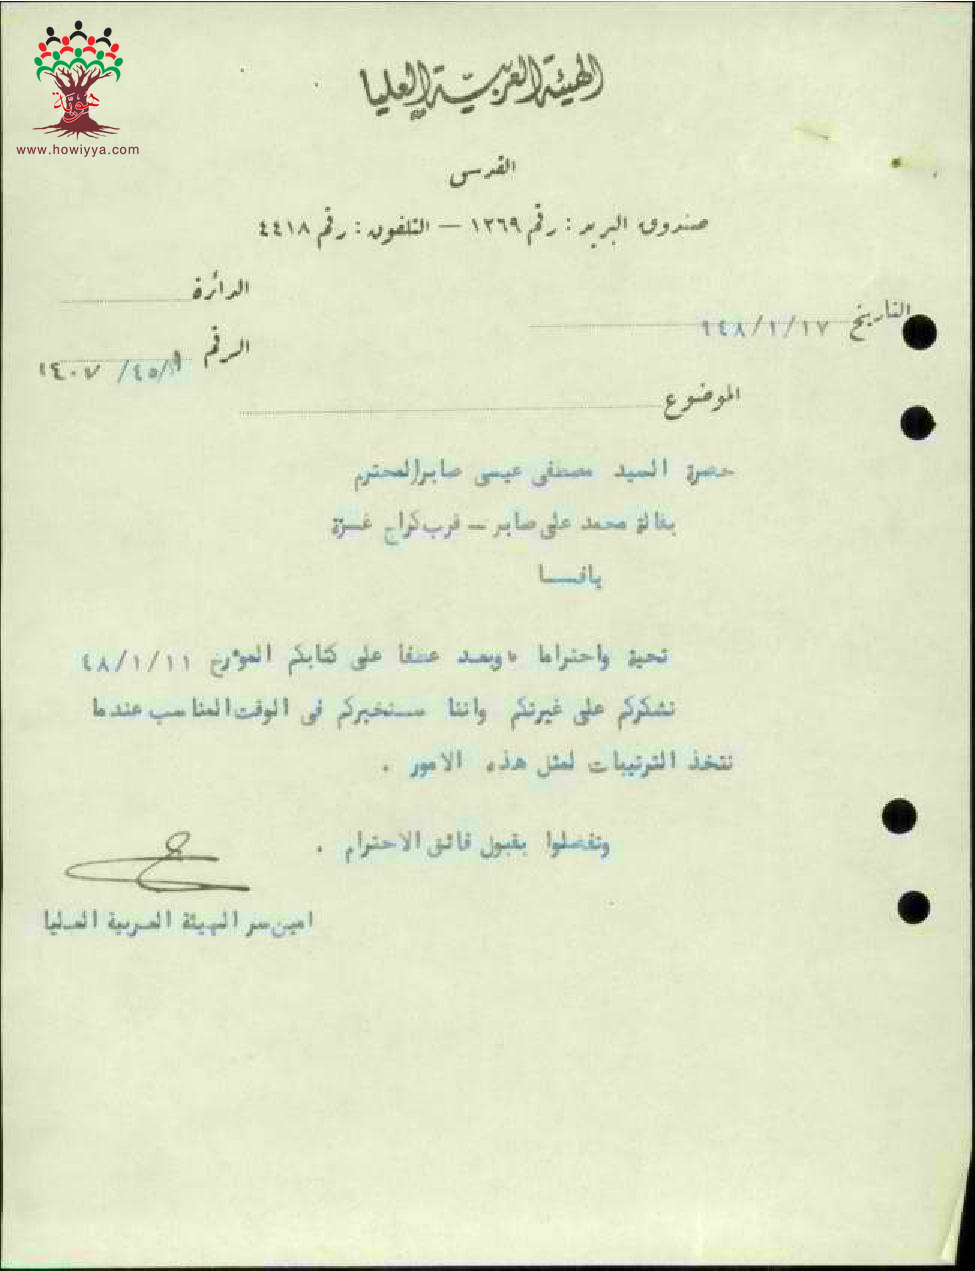 هوية
www.howiyya.com
الهيئة العربية العليا
القدس
صندوق البريد : رقم ١٢٦٩ — التلفون : رقم ٤٤١٨
الدائرة
التاريخ ٩٤٨/١/١٧
الرقم
الموضوع
حضرة السيد مصطفى عيسى صابر المحترم
بقالة محمد علي صابر – قرب كراج غزة
يافــا
تحية واحتراما ، وبعد عطفا على كتابكم المؤرخ ٤٨/١/١١
نشكركم على غيرتكم واننا سنخبركم في الوقت المناسب عندما
نتخذ الترتيبات لمثل هذه الامور .
وتفضلوا بقبول فائق الاحترام .
امين سر الهيئة العربية العليا